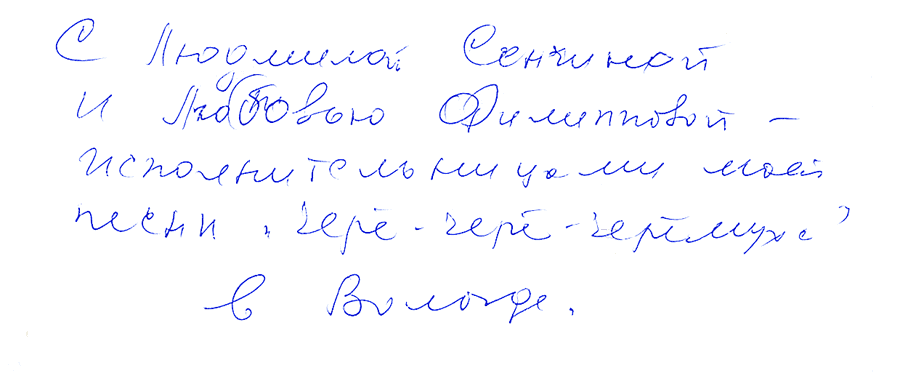 С Людмилой Сенчиной
и Любовью Филипповой –
исполнительницами моей
песни „Чере-чере-черёмуха”
в Вологде.